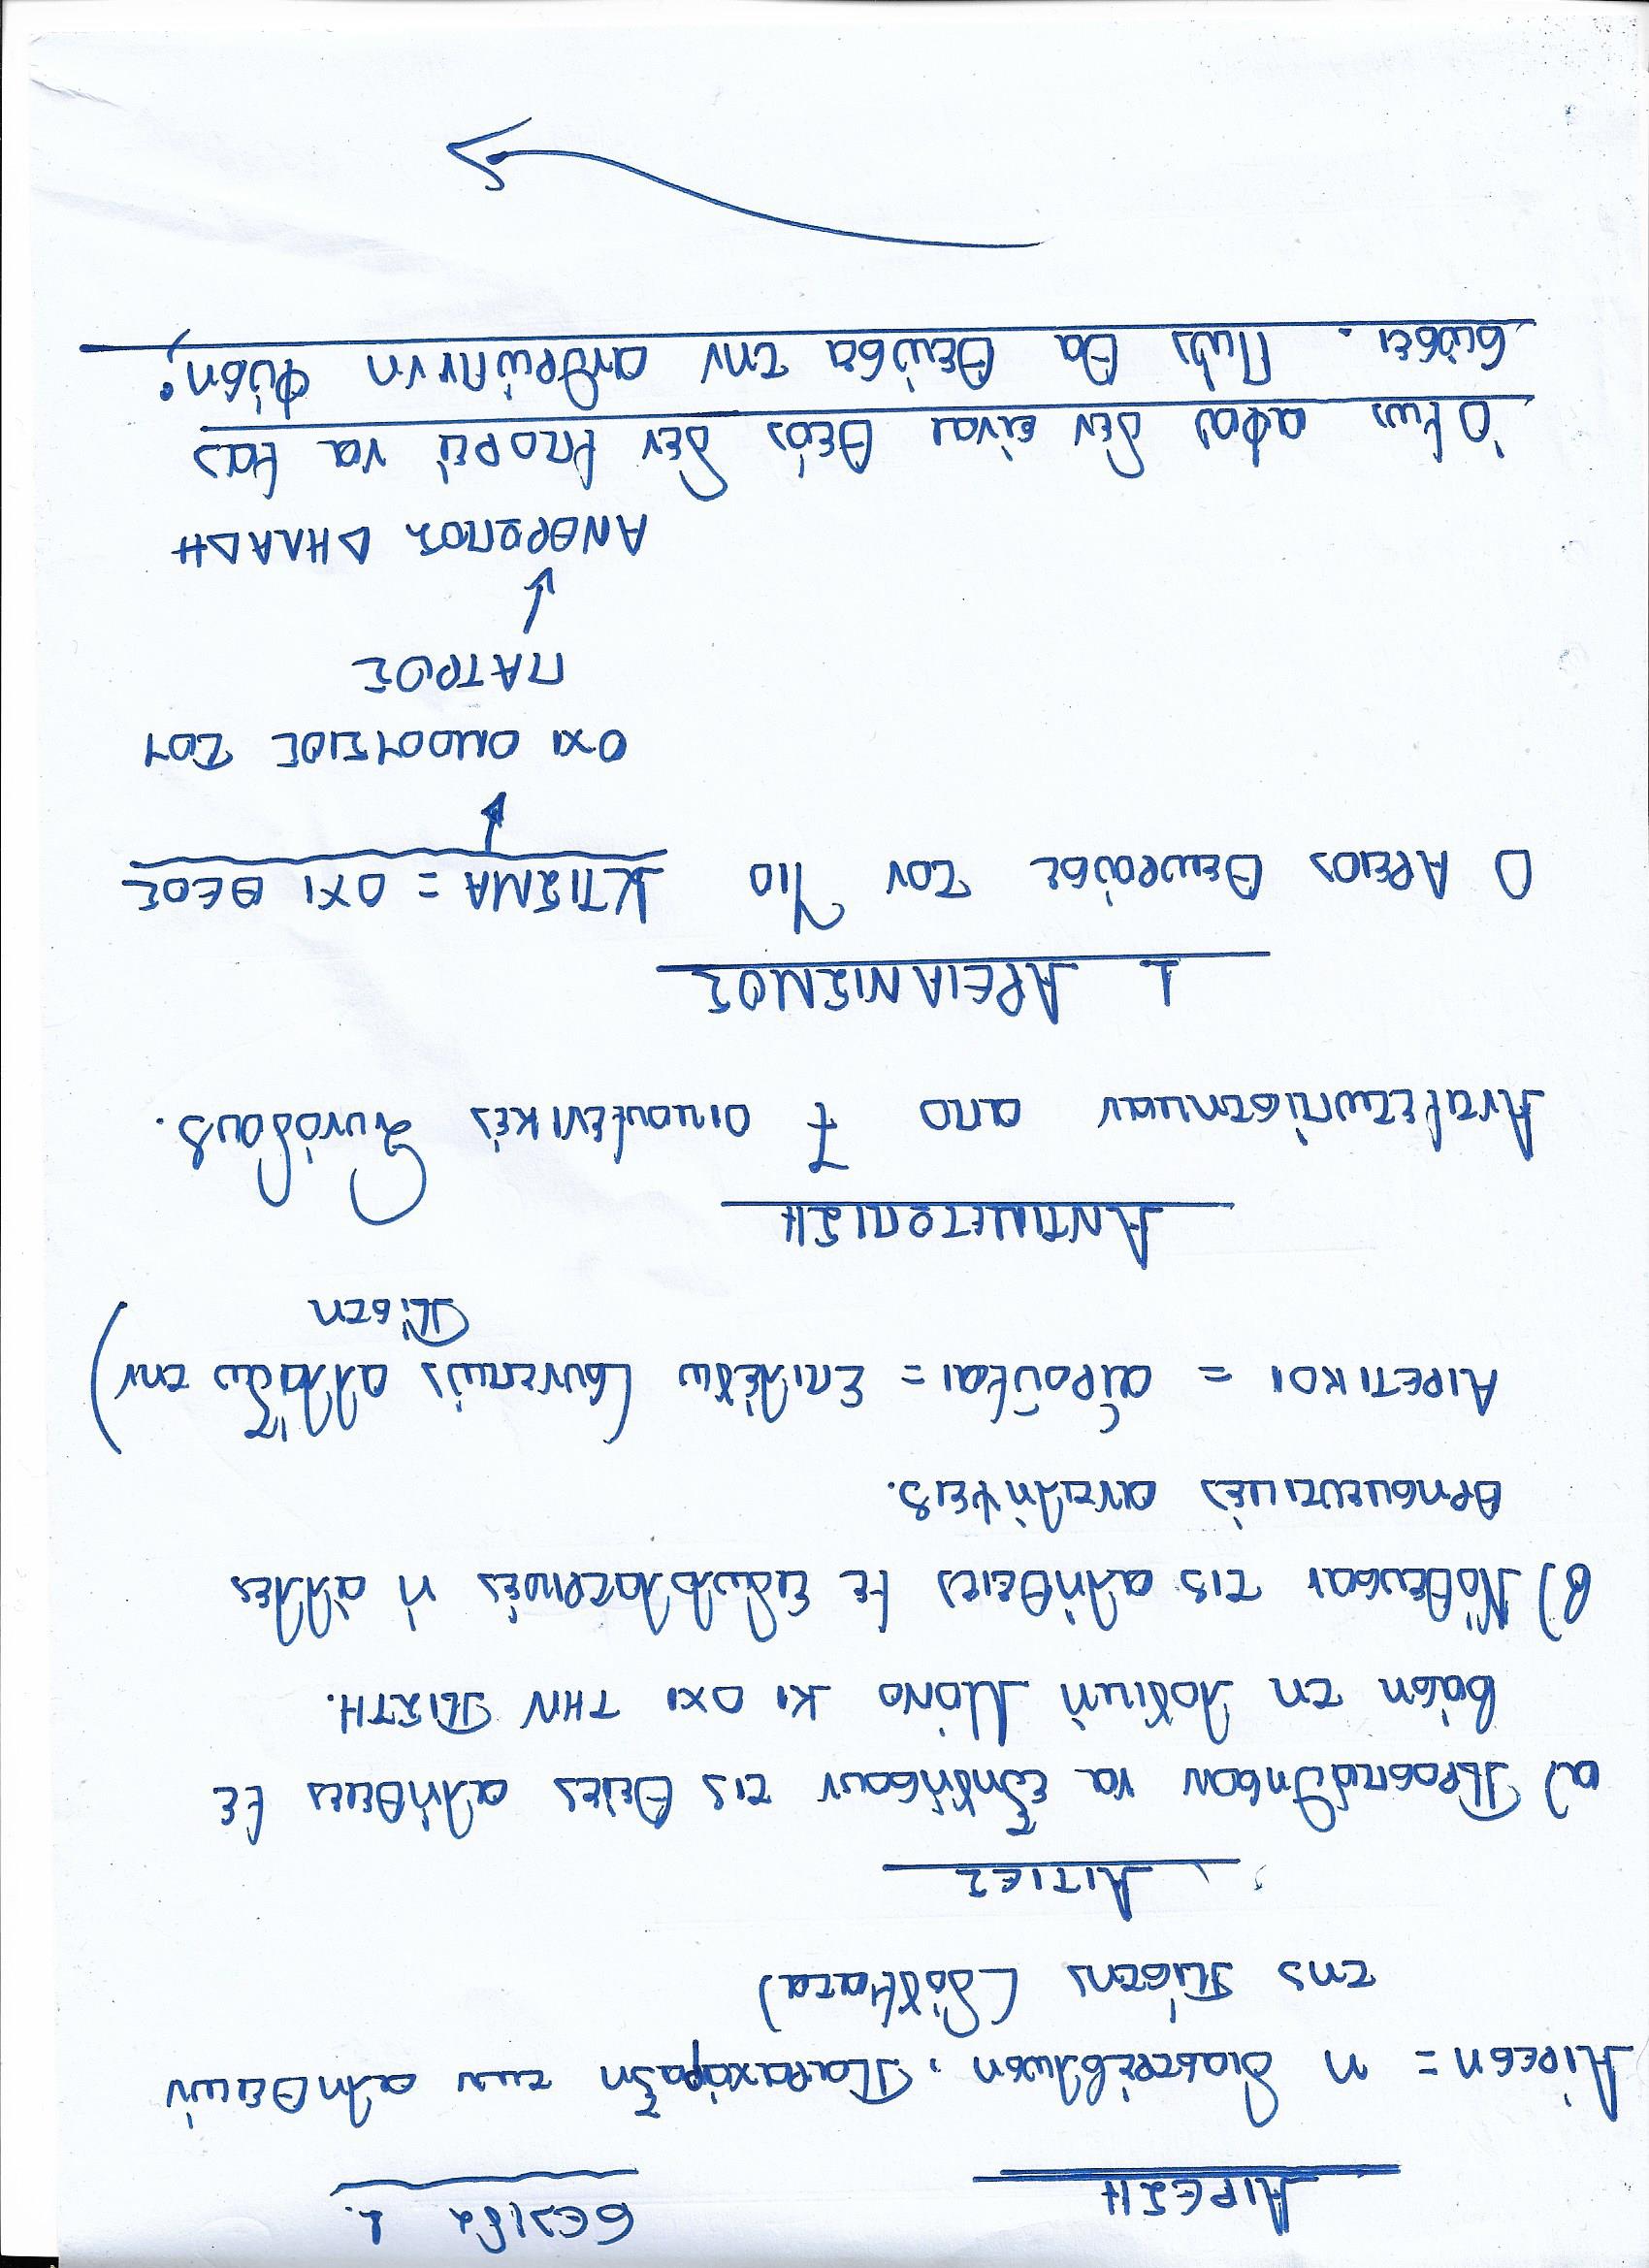 ΑΙΡΕΣΗ σελιδα 1.
Αίρεση = η διαστρέβλωση, Παραχάραξη των αληθειών
της πίστης (δόγματα)
ΑΙΤΙΕΣ
α) Προσπάθησαν να εξηγήσουν τις θείες αλήθειες με
βάση τη λογική Μόνο κι οχι ΤΗΝ ΠΙΣΤΗ.
β) Νόθευσαν τις αλήθειες με ειδωλολατρικές ή άλλες
θρησκευτικές αντιλήψεις.
ΑΙΡΕΤΙΚΟΙ = αἱροῦμαι = Επιλέγω (συνεπώς αλλάζω την
Πίστη)
ΑΝΤΙΜΕΤΩΠΙΣΗ
Αντιμετωπίστηκαν απο 7 οικουμενικές Συνόδους.
1 ΑΡΕΙΑΝΙΣΜΟΣ
Ο ΑΡΕΙΟΣ θεωρούσε τον Υιο ΚΤΙΣΜΑ = ΟΧΙ ΘΕΟΣ
ΟΧΙ ΟΜΟΟΥΣΙΟΣ ΤΟΥ
ΠΑΤΡΟΣ
ΑΝΘΡΩΠΟΣ ΔΗΛΑΔΗ
Όμως αφού δεν είναι Θεός δεν μπορεί να μας
σώσει. Πως θα θεώσει την ανθρώπινη φύση;